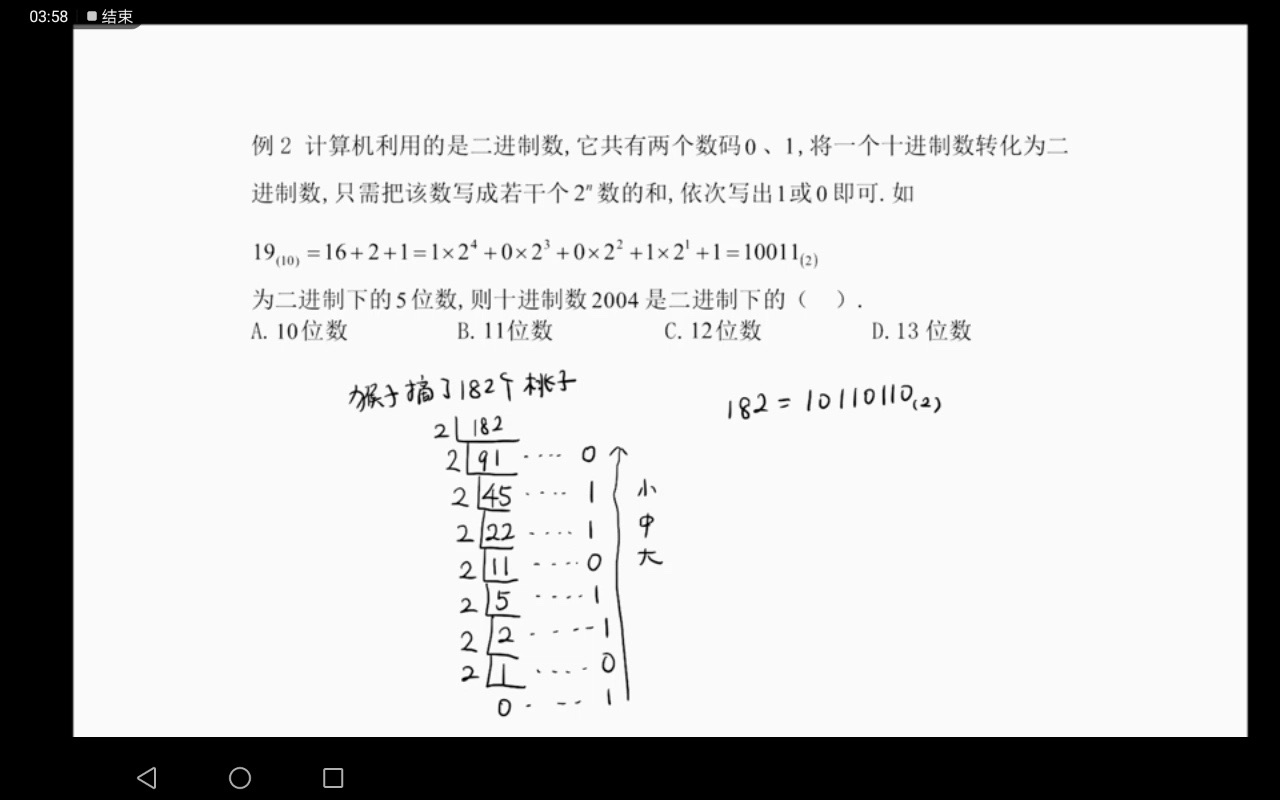 03:58 结束
例 2 计算机利用的是二进制数,它共有两个数码0、1,将一个十进制数转化为二
进制数,只需把该数写成若干个 2ⁿ 数的和,依次写出1或0即可.如
19₍₁₀₎ =16+2+1=1×2⁴+0×2³+0×2²+1×2¹+1=10011₍₂₎
为二进制下的5位数,则十进制数2004是二进制下的( ).
A. 10位数 B. 11位数 C. 12位数 D. 13 位数
猴子摘了182个桃子
182 = 10110110₍₂₎
2 182
2 91 ···· 0
2 45 ···· 1
2 22 ···· 1
2 11 ···· 0
2 5 ···· 1
2 2 ···· 1
2 1 ···· 0
0 ···· 1
小
中
大